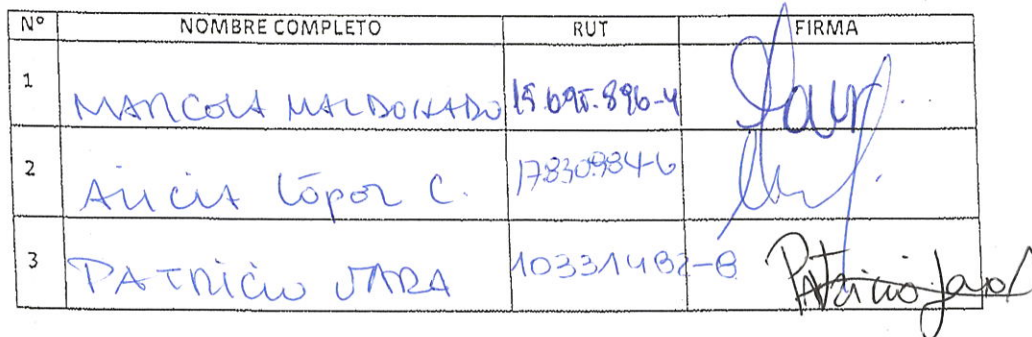 Nº NOMBRE COMPLETO RUT FIRMA
1 MARCOLA MALDONADO 15.695.896-4
2 Alicia López C. 17830984-6
3 PATRICIO JARA 10331482-8 Patricio Jara